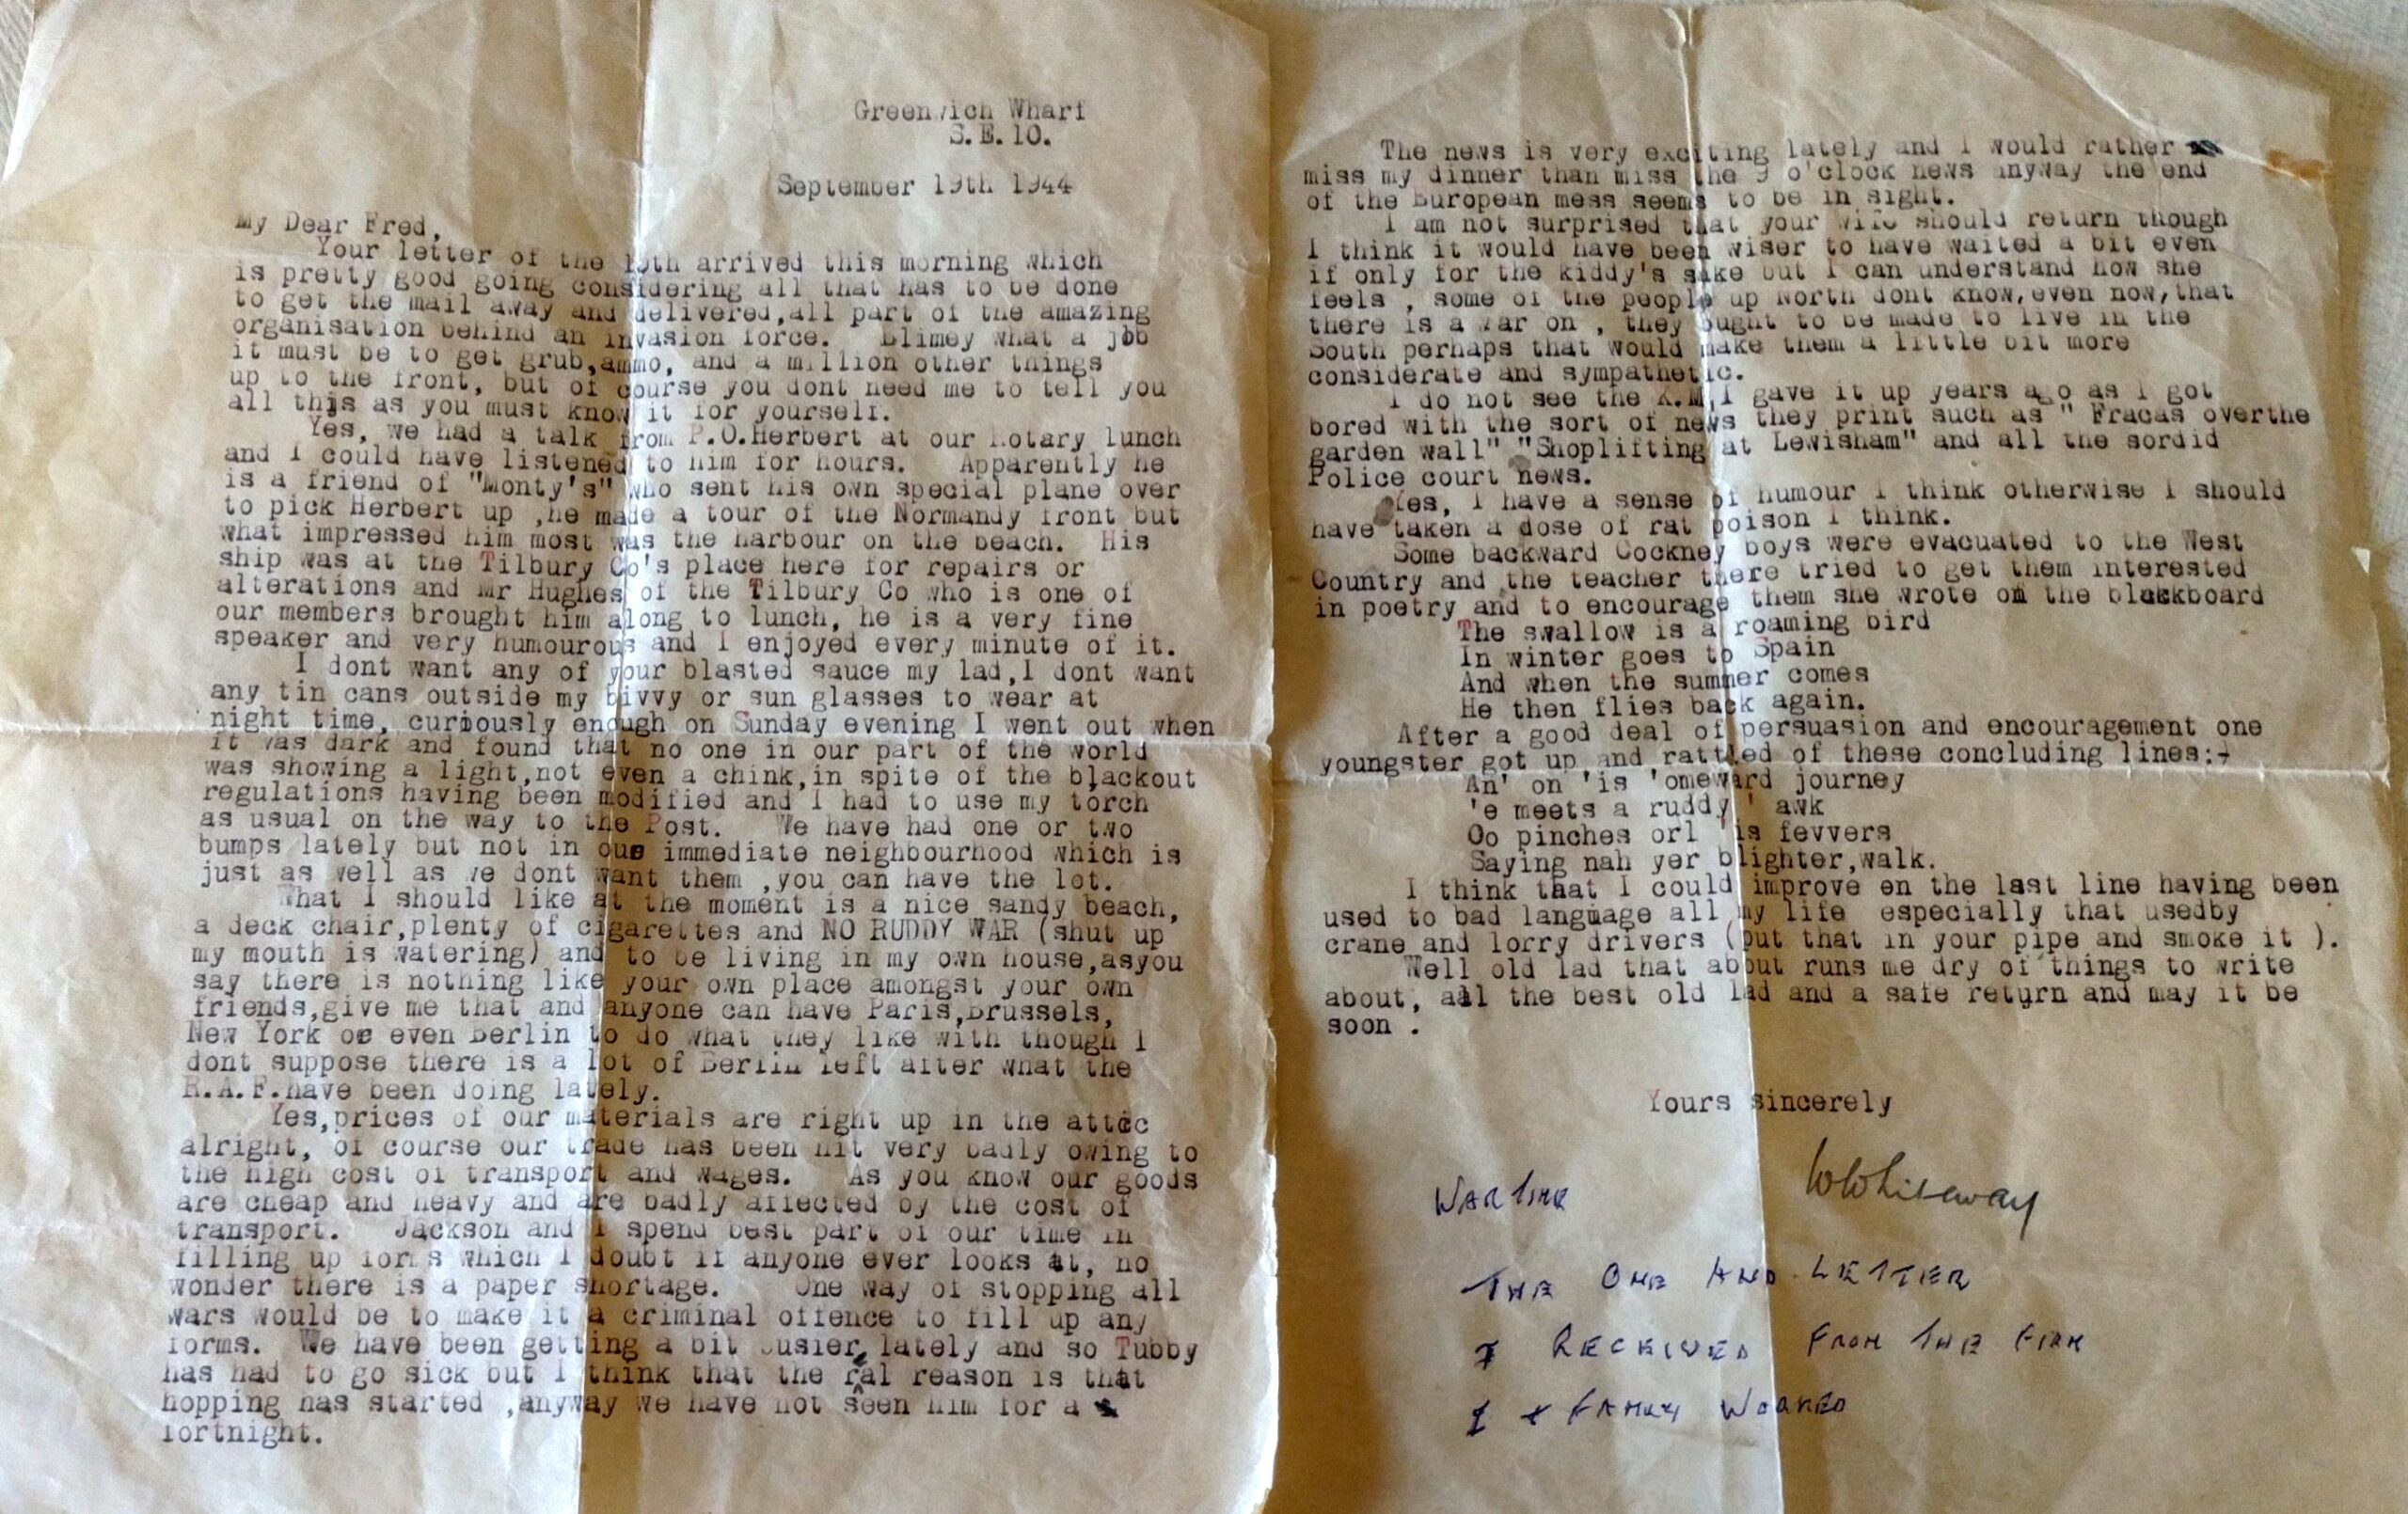 Greenwich Wharf
S.E.10.
September 19th 1944
My Dear Fred,
Your letter of the arrived this morning which
is pretty good going considering all that has to be done
to get the mail away and delivered,all part of the amazing
organisation behind an invasion force. Blimey what a job
it must be to get grub,ammo, and a million other things
up to the front, but of course you dont need me to tell you
all this as you must know it for yourself.
Yes, we had a talk from P.O.Herbert at our Rotary lunch
and I could have listened to him for hours. Apparently he
is a friend of "Monty's" who sent his own special plane over
to pick Herbert up ,he made a tour of the Normandy front but
what impressed him most was the harbour on the beach. His
ship was at the Tilbury Co's place here for repairs or
alterations and Mr Hughes of the Tilbury Co who is one of
our members brought him along to lunch, he is a very fine
speaker and very humourous and I enjoyed every minute of it.
I dont want any of your blasted sauce my lad,I dont want
any tin cans outside my bivvy or sun glasses to wear at
night time, curiously enough on Sunday evening I went out when
it was dark and found that no one in our part of the world
was showing a light,not even a chink,in spite of the blackout
regulations having been modified and I had to use my torch
as usual on the way to the Post. We have had one or two
bumps lately but not in our immediate neighbourhood which is
just as well as we dont want them ,you can have the lot.
What I should like at the moment is a nice sandy beach,
a deck chair,plenty of cigarettes and NO RUDDY WAR (shut up
my mouth is watering) and to be living in my own house,asyou
say there is nothing like your own place amongst your own
friends,give me that and anyone can have Paris,Brussels,
New York or even Berlin to do what they like with though I
dont suppose there is a lot of Berlin left after what the
R.A.F.have been doing lately.
Yes,prices of our materials are right up in the attic
alright, of course our trade has been hit very badly owing to
the high cost of transport and wages. As you know our goods
are cheap and heavy and are badly affected by the cost of
transport. Jackson and I spend best part of our time in
filling up forms which I doubt if anyone ever looks at, no
wonder there is a paper shortage. One way of stopping all
wars would be to make it a criminal offence to fill up any
forms. We have been getting a bit busier lately and so Tubby
has had to go sick but I think that the real reason is that
hopping has started ,anyway we have not seen him for a
fortnight.
The news is very exciting lately and I would rather
miss my dinner than miss the 9 o'clock news anyway the end
of the European mess seems to be in sight.
I am not surprised that your wife should return though
I think it would have been wiser to have waited a bit even
if only for the kiddy's sake but I can understand how she
feels , some of the people up North dont know,even now,that
there is a war on , they ought to be made to live in the
South perhaps that would make them a little bit more
considerate and sympathetic.
I do not see the K.M,I gave it up years ago as I got
bored with the sort of news they print such as " Fracas overthe
garden wall" "Shoplifting at Lewisham" and all the sordid
Police court news.
Yes, I have a sense of humour I think otherwise I should
have taken a dose of rat poison I think.
Some backward Cockney boys were evacuated to the West
Country and the teacher there tried to get them interested
in poetry and to encourage them she wrote on the blackboard
The swallow is a roaming bird
In winter goes to Spain
And when the summer comes
He then flies back again.
After a good deal of persuasion and encouragement one
youngster got up and rattled of these concluding lines:-
An' on 'is 'omeward journey
'e meets a ruddy ' awk
Oo pinches orl 'is fevvers
Saying nah yer blighter,walk.
I think that I could improve on the last line having been
used to bad language all my life especially that usedby
crane and lorry drivers (put that in your pipe and smoke it ).
Well old lad that about runs me dry of things to write
about, all the best old lad and a safe return and may it be
soon .
Yours sincerely
WWhiteway
WARTIME
THE ONE AND LETTER
I RECEIVED FROM THE FIRM
I & FAMILY WORKED